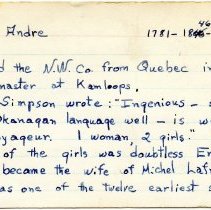 Andre 1781-18
d the N.W. Co. from Quebec in
master at Kamloops.
Simpson wrote: "Ingenious -
Okanagan language well - is
yageur. 1 woman, 2 girls."
of the girls was doubtless
became the wife of Michel
as one of the twelve earliest